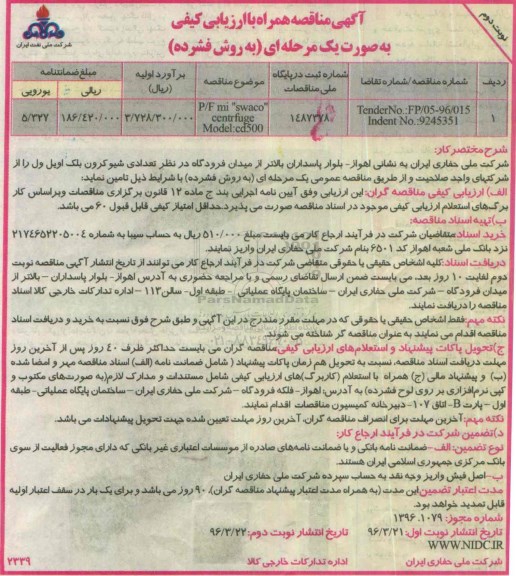 نوبت دوم
آگهی مناقصه همراه با ارزیابی کیفی
به صورت یک مرحله ای (به روش فشرده)
شرکت ملی نفت ایران
ردیف
شماره مناقصه/شماره تقاضا
شماره ثبت در پایگاه ملی مناقصات
موضوع مناقصه
برآورد اولیه (ریال)
مبلغ ضمانتنامه
ریالی
یورویی
۱
TenderNo.:FP/05-96/015
Indent No.:9245351
P/F mi "swaco"
centrfuge
Model:cd500
۳/۷۲۸/۳۰۰/۰۰۰
۱۸۶/۴۲۰/۰۰۰
۵/۳۲۷
شرح مختصر کار:
شرکت ملی حفاری ایران به نشانی اهواز- بلوار پاسداران بالاتر از میدان فرودگاه در نظر تعدادی شیوکرون بلک اویل ول را از
شرکتهای واجد صلاحیت و از طریق مناقصه عمومی یک مرحله ای (به روش فشرده) با شرایط ذیل تامین نماید:
الف) ارزیابی کیفی مناقصه گران: این ارزیابی وفق آیین نامه اجرایی بند ج ماده ۱۲ قانون برگزاری مناقصات وبراساس کار
برگ‌های استعلام ارزیابی کیفی موجود در اسناد مناقصه صورت می پذیرد.حداقل امتیاز کیفی قابل قبول ۶۰ می باشد.
ب)تهیه اسناد مناقصه:
خرید اسناد:متقاضیان شرکت در فرآیند ارجاع کار می بایست مبلغ ۵۱۰/۰۰۰ ریال به حساب سیبا به شماره ۲۱۷۴۶۵۲۲۰۵۰۰۴
نزد بانک ملی شعبه اهواز کد ۶۵۰۱ بنام شرکت ملی حفاری ایران واریز نمایند.
دریافت اسناد:کلیه اشخاص حقیقی یا حقوقی متقاضی شرکت در فرآیند ارجاع کار می توانند از تاریخ انتشار آگهی مناقصه نوبت
دوم لغایت ۱۰ روز بعد، می بایست ضمن ارسال تقاضای رسمی و با مراجعه حضوری به آدرس اهواز- بلوار پاسداران – بالاتر از
میدان فرودگاه – شرکت ملی حفاری ایران – ساختمان پایگاه عملیاتی – طبقه اول- سالن ۱۱۳ –اداره تدارکات خارجی کالا اسناد
مناقصه را دریافت نمایند.
نکته مهم:فقط اشخاص حقیقی یا حقوقی که در مهلت مقرر مندرج در این آگهی و طبق شرح فوق نسبت به خرید و دریافت اسناد
مناقصه اقدام می نمایند به عنوان مناقصه گر شناخته می شوند.
ج)تحویل پاکات پیشنهاد و استعلام‌های ارزیابی کیفی:مناقصه گران می بایست حداکثر ظرف ۴۰ روز پس از آخرین روز
مهلت دریافت اسناد مناقصه، نسبت به تحویل هم زمان پاکات پیشنهاد ( شامل ضمانت نامه (الف) اسناد مناقصه مهر و امضا شده
(ب) و پیشنهاد مالی (ج) همراه با استعلام (کاربرگ)های ارزیابی کیفی شامل مستندات و مدارک لازم(به صورت‌های مکتوب و
کپی نرم‌افزاری بر روی لوح فشرده) به آدرس: اهواز– فلکه فرودگاه – شرکت ملی حفاری ایران–ساختمان پایگاه عملیاتی–طبقه
اول – پارت B– اتاق ۱۰۷– دبیرخانه کمیسیون مناقصات اقدام نمایند.
نکته مهم: آخرین مهلت برای انصراف مناقصه گران، آخرین روز مهلت تعیین شده جهت تحویل پیشنهادات می باشد.
د)تضمین شرکت در فرآیند ارجاع کار:
نوع تضمین: الف –ضمانت نامه بانکی و یا ضمانت نامه‌های صادره از موسسات اعتباری غیر بانکی که دارای مجوز فعالیت از سوی
بانک مرکزی جمهوری اسلامی ایران هستند.
ب –اصل فیش واریز وجه نقد به حساب سپرده شرکت ملی حفاری ایران
مدت اعتبار تضمین:این مدت (به همراه مدت اعتبار پیشنهاد مناقصه گران)، ۹۰ روز می باشد و برای یک بار در سقف اعتبار اولیه
قابل تمدید خواهد بود.
شماره مجوز: ۱۳۹۶.۱۰۷۹
تاریخ انتشار نوبت اول: ۹۶/۳/۲۱
تاریخ انتشار نوبت دوم: ۹۶/۳/۲۲
WWW.NIDC.IR
شرکت ملی حفاری ایران
اداره تدارکات خارجی کالا
۲۳۳۹